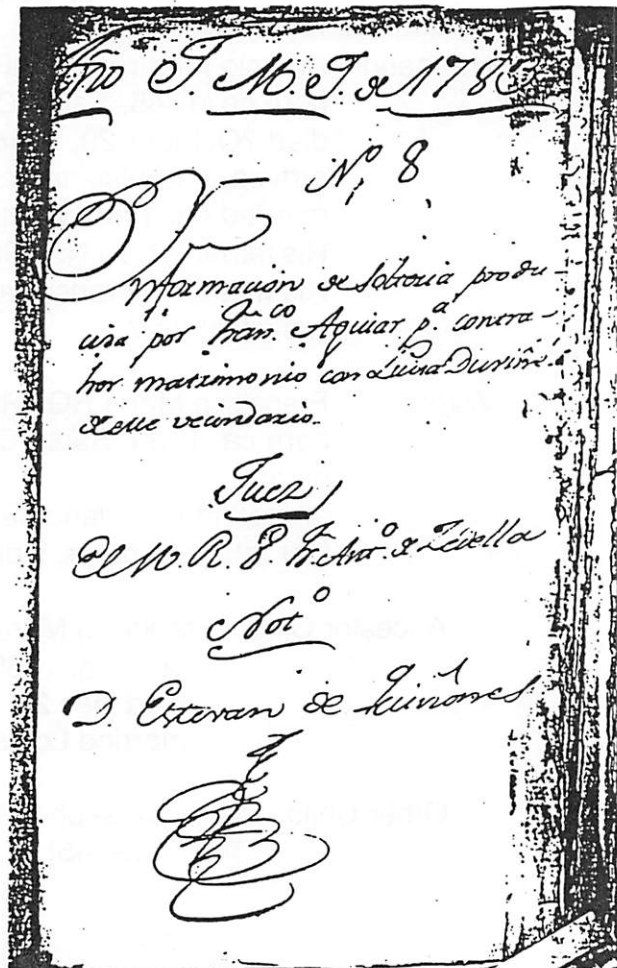 Año J. M. J. de 178
Nº 8
Ynformacion de Solteria produ-
cida por Fran.co Aguiar p.a contra-
her matrimonio con Lucia
de este vecindario.
Juez
El M. R. P. Fr. Ant.o de
Not.o
D. Estevan de Quiñones